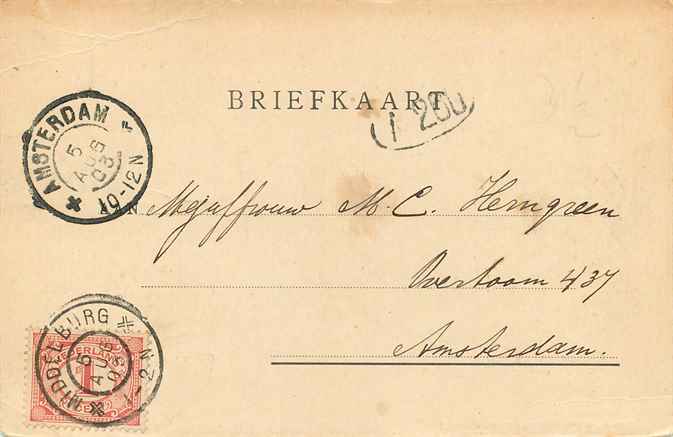 BRIEFKAART
AMSTERDAM
5
AUG
03
10-12 N
AAN Mejuffrouw M. C. Herngreen
Overtoom 437
Amsterdam.
MIDDELBURG
5
AUG
03
1-2 N
NEDERLAND
1